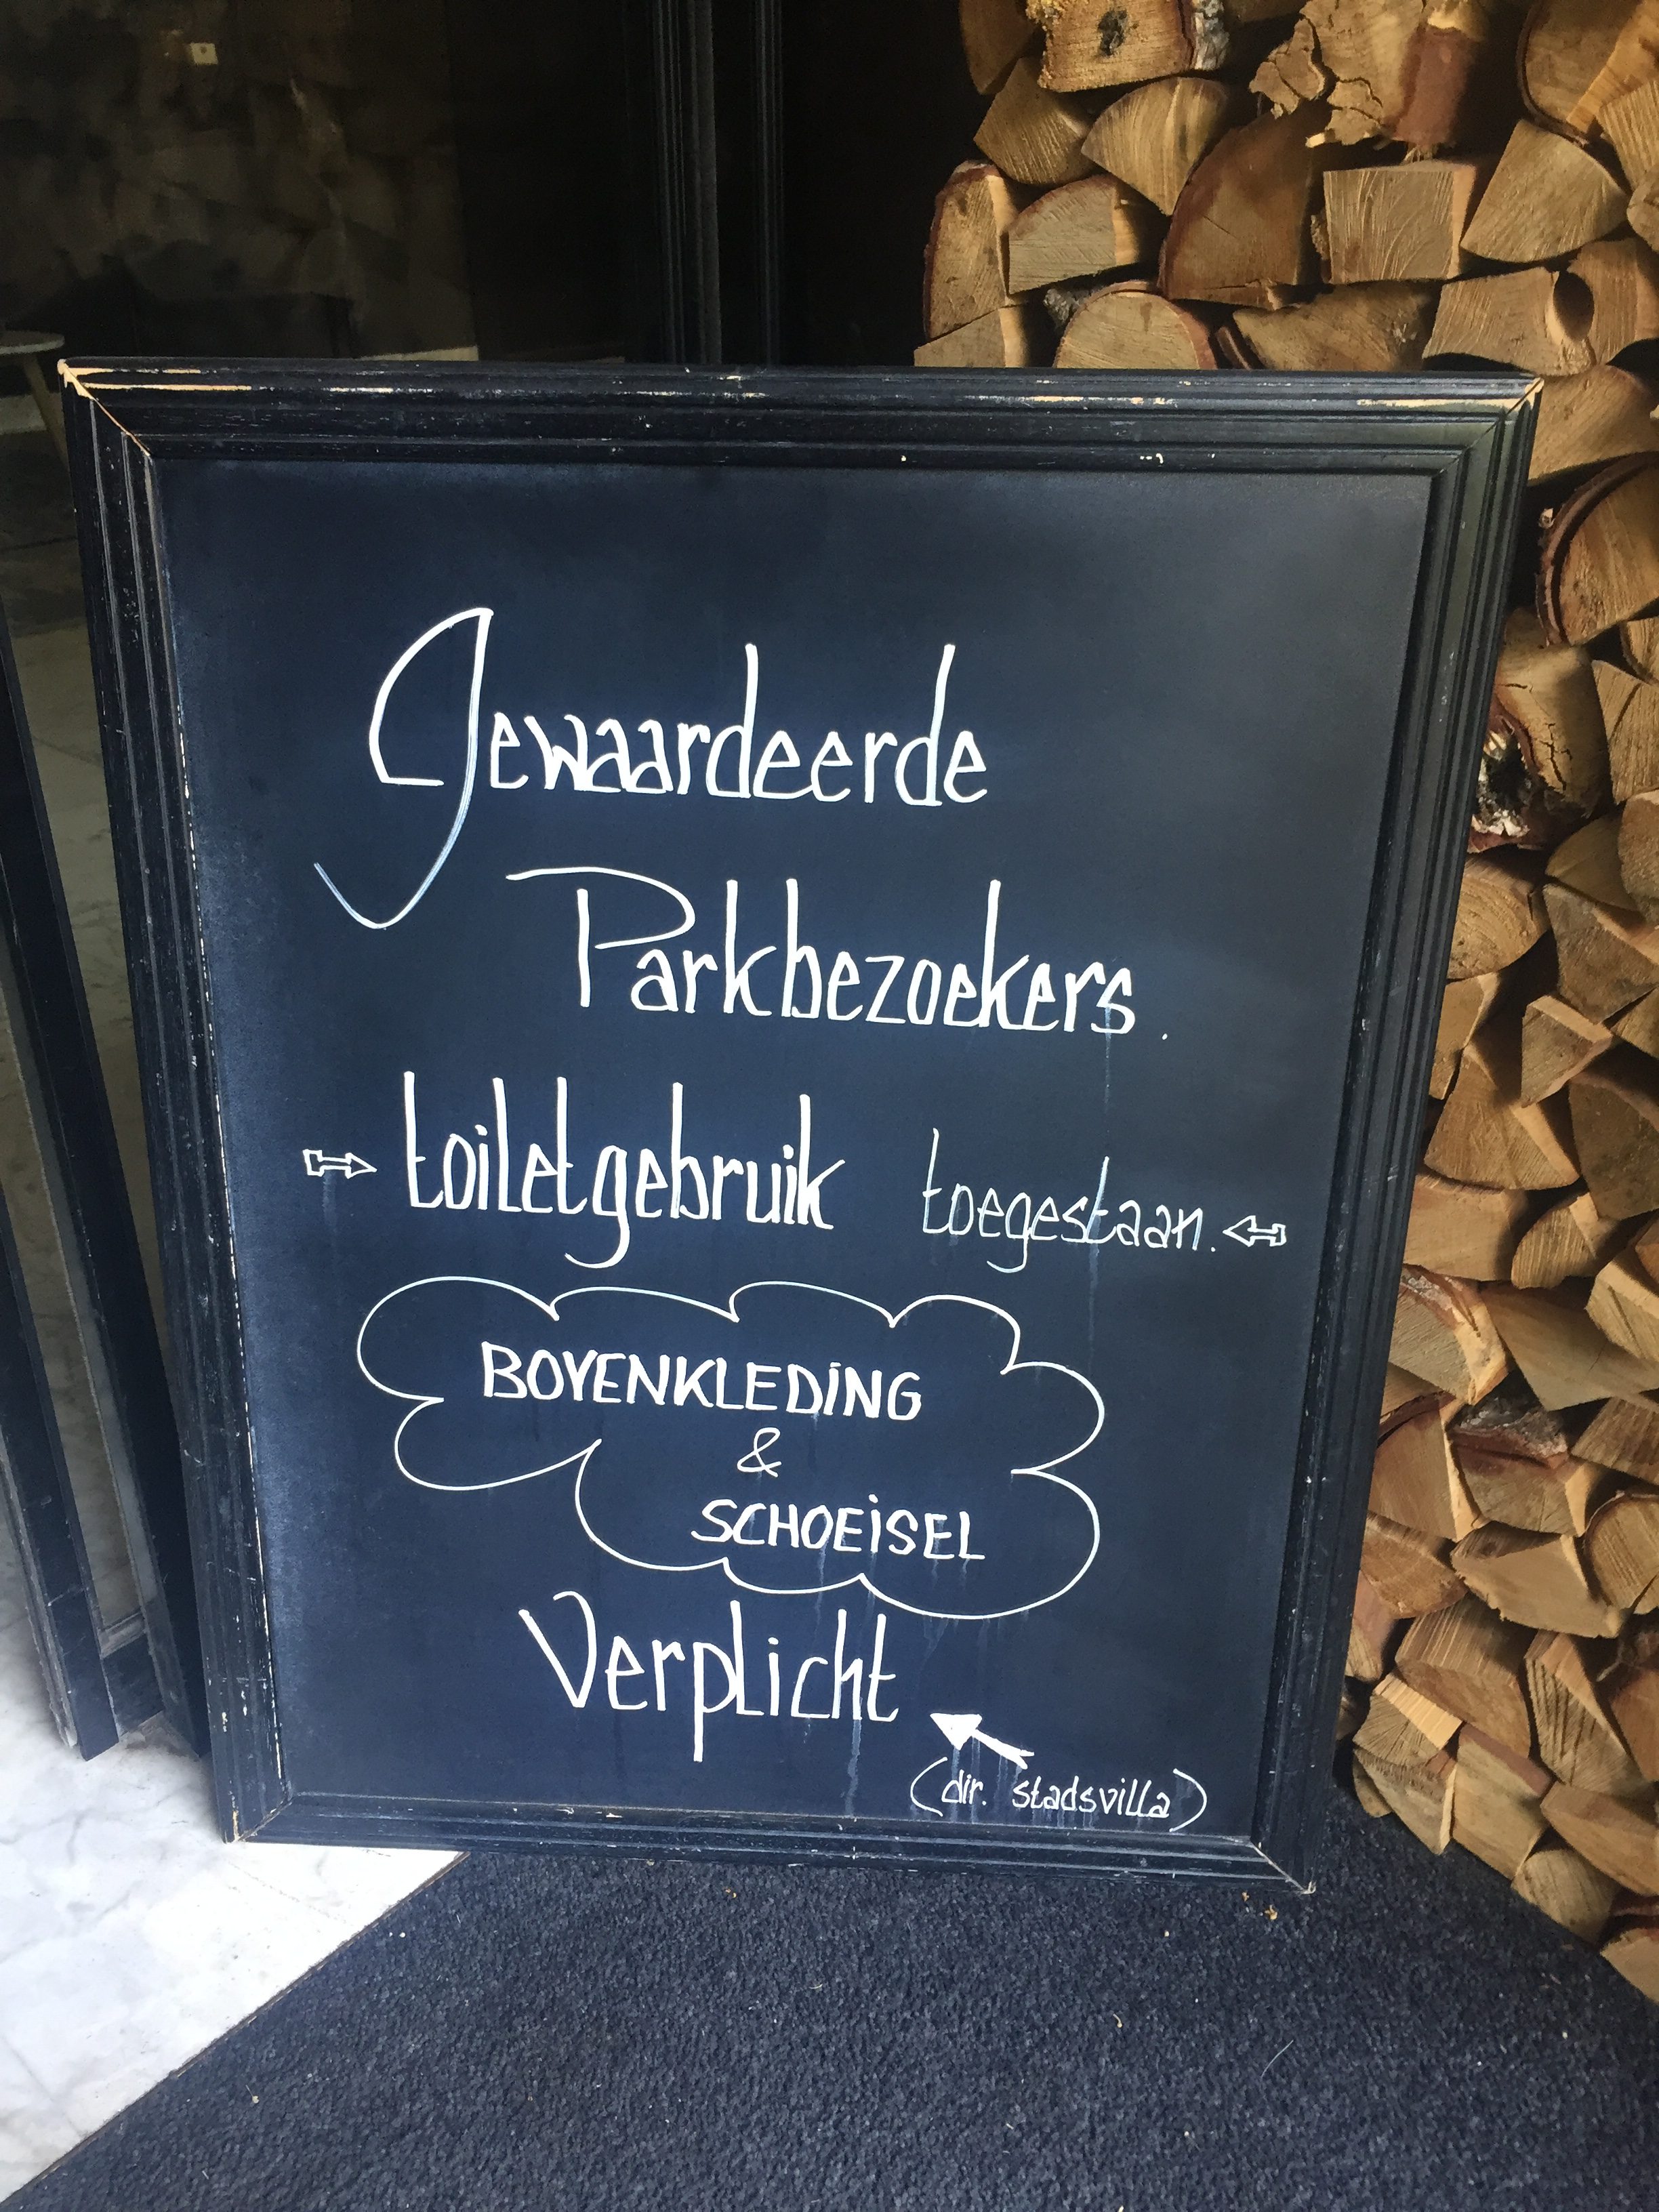 Gewaardeerde
Parkbezoekers.
toiletgebruik toegestaan.
BOVENKLEDING
&
SCHOEISEL
Verplicht
(dir. stadsvilla)